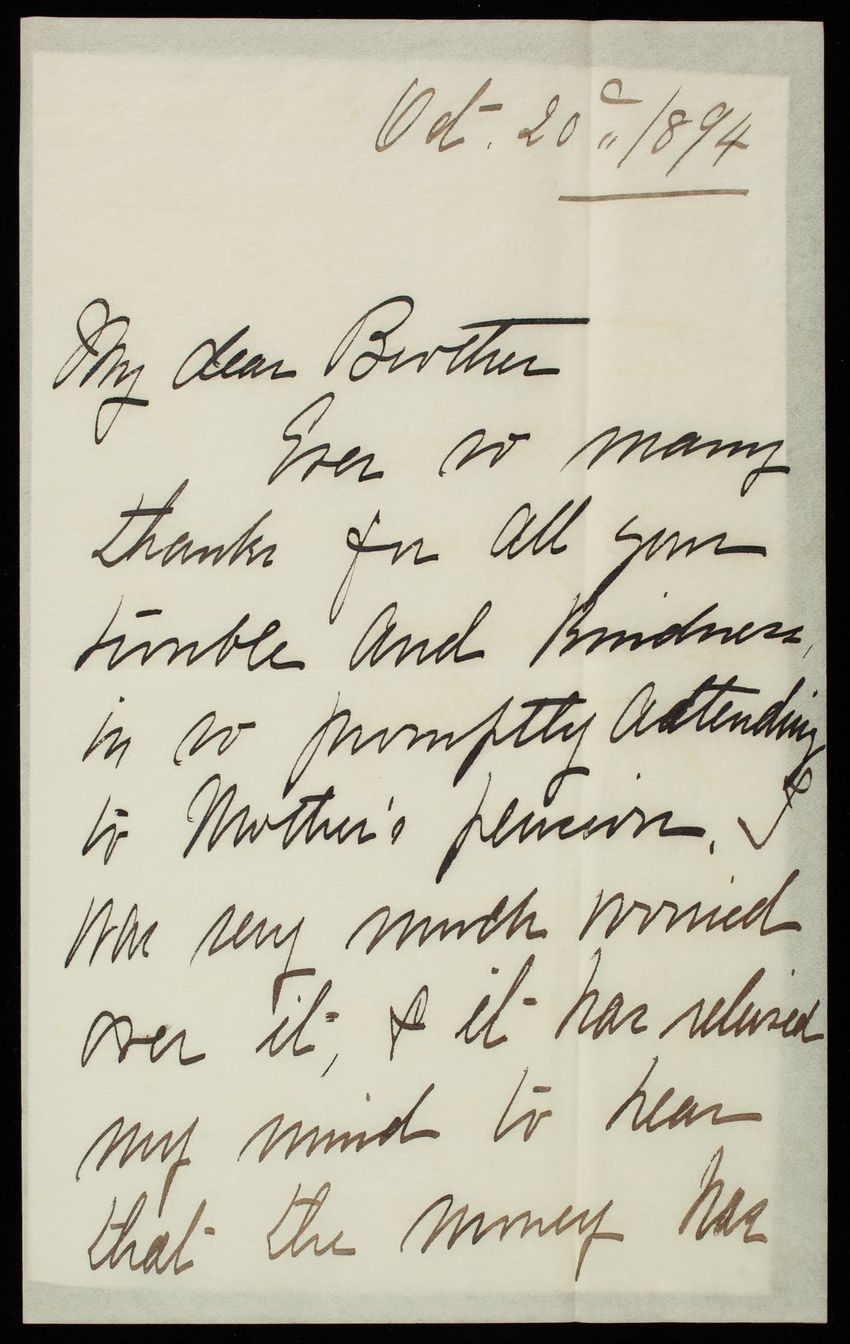 Oct. 20" /1894
My dear Brother
Ever so many
thanks for all your
trouble and kindness,
in so promptly attending
to Mother's pension. I
was very much worried
over it, & it has relieved
my mind to hear
that the money has